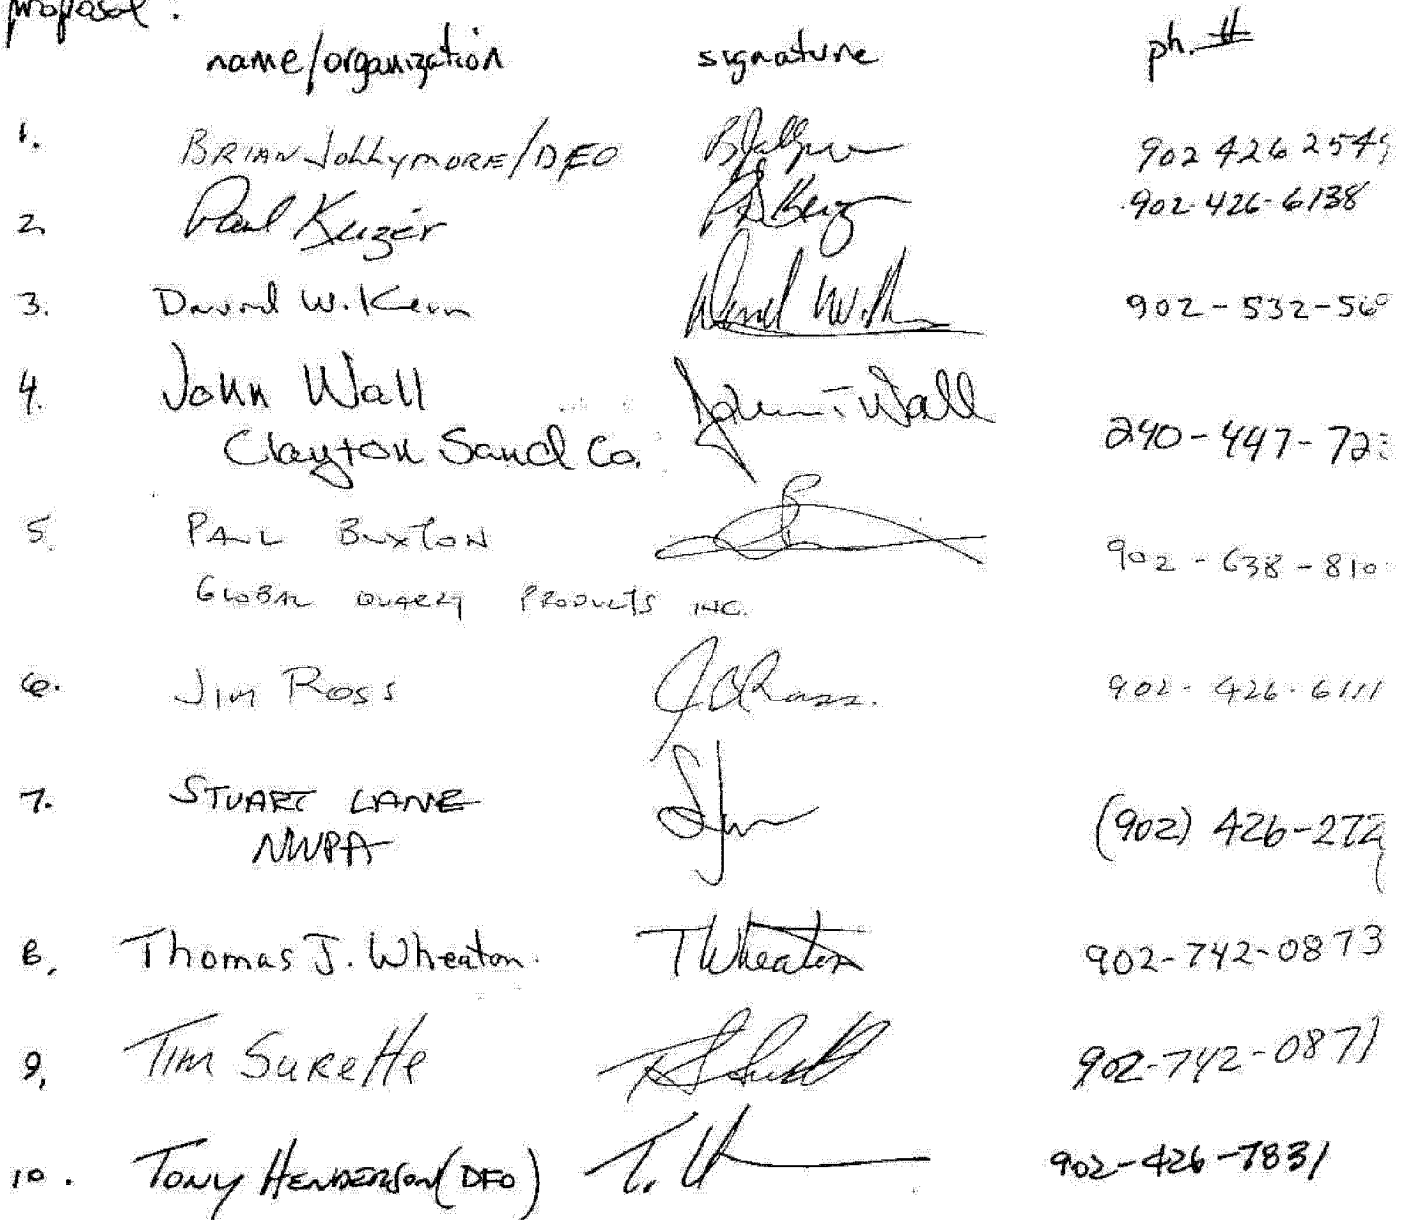 proposal.
name/organization signature ph. #
1. BRIAN JOLLYMORE/DFO 902 426 254
2. Paul Keizer 902-426-6138
3. David W. Kern 902-532-56
4. John Wall John T Wall
Clayton Sand Co. 240-447-72
5. PAUL BUXTON 902-638-810
GLOBAL QUARRY PRODUCTS INC.
6. JIM ROSS JCRoss. 902-426-6111
7. STUART LANE (902) 426-272
NWPA
8. Thomas J. Wheaton. T Wheaton 902-742-0873
9. TIM SURette 902-742-0871
10. TONY HENDERSON (DFO) 902-426-7831